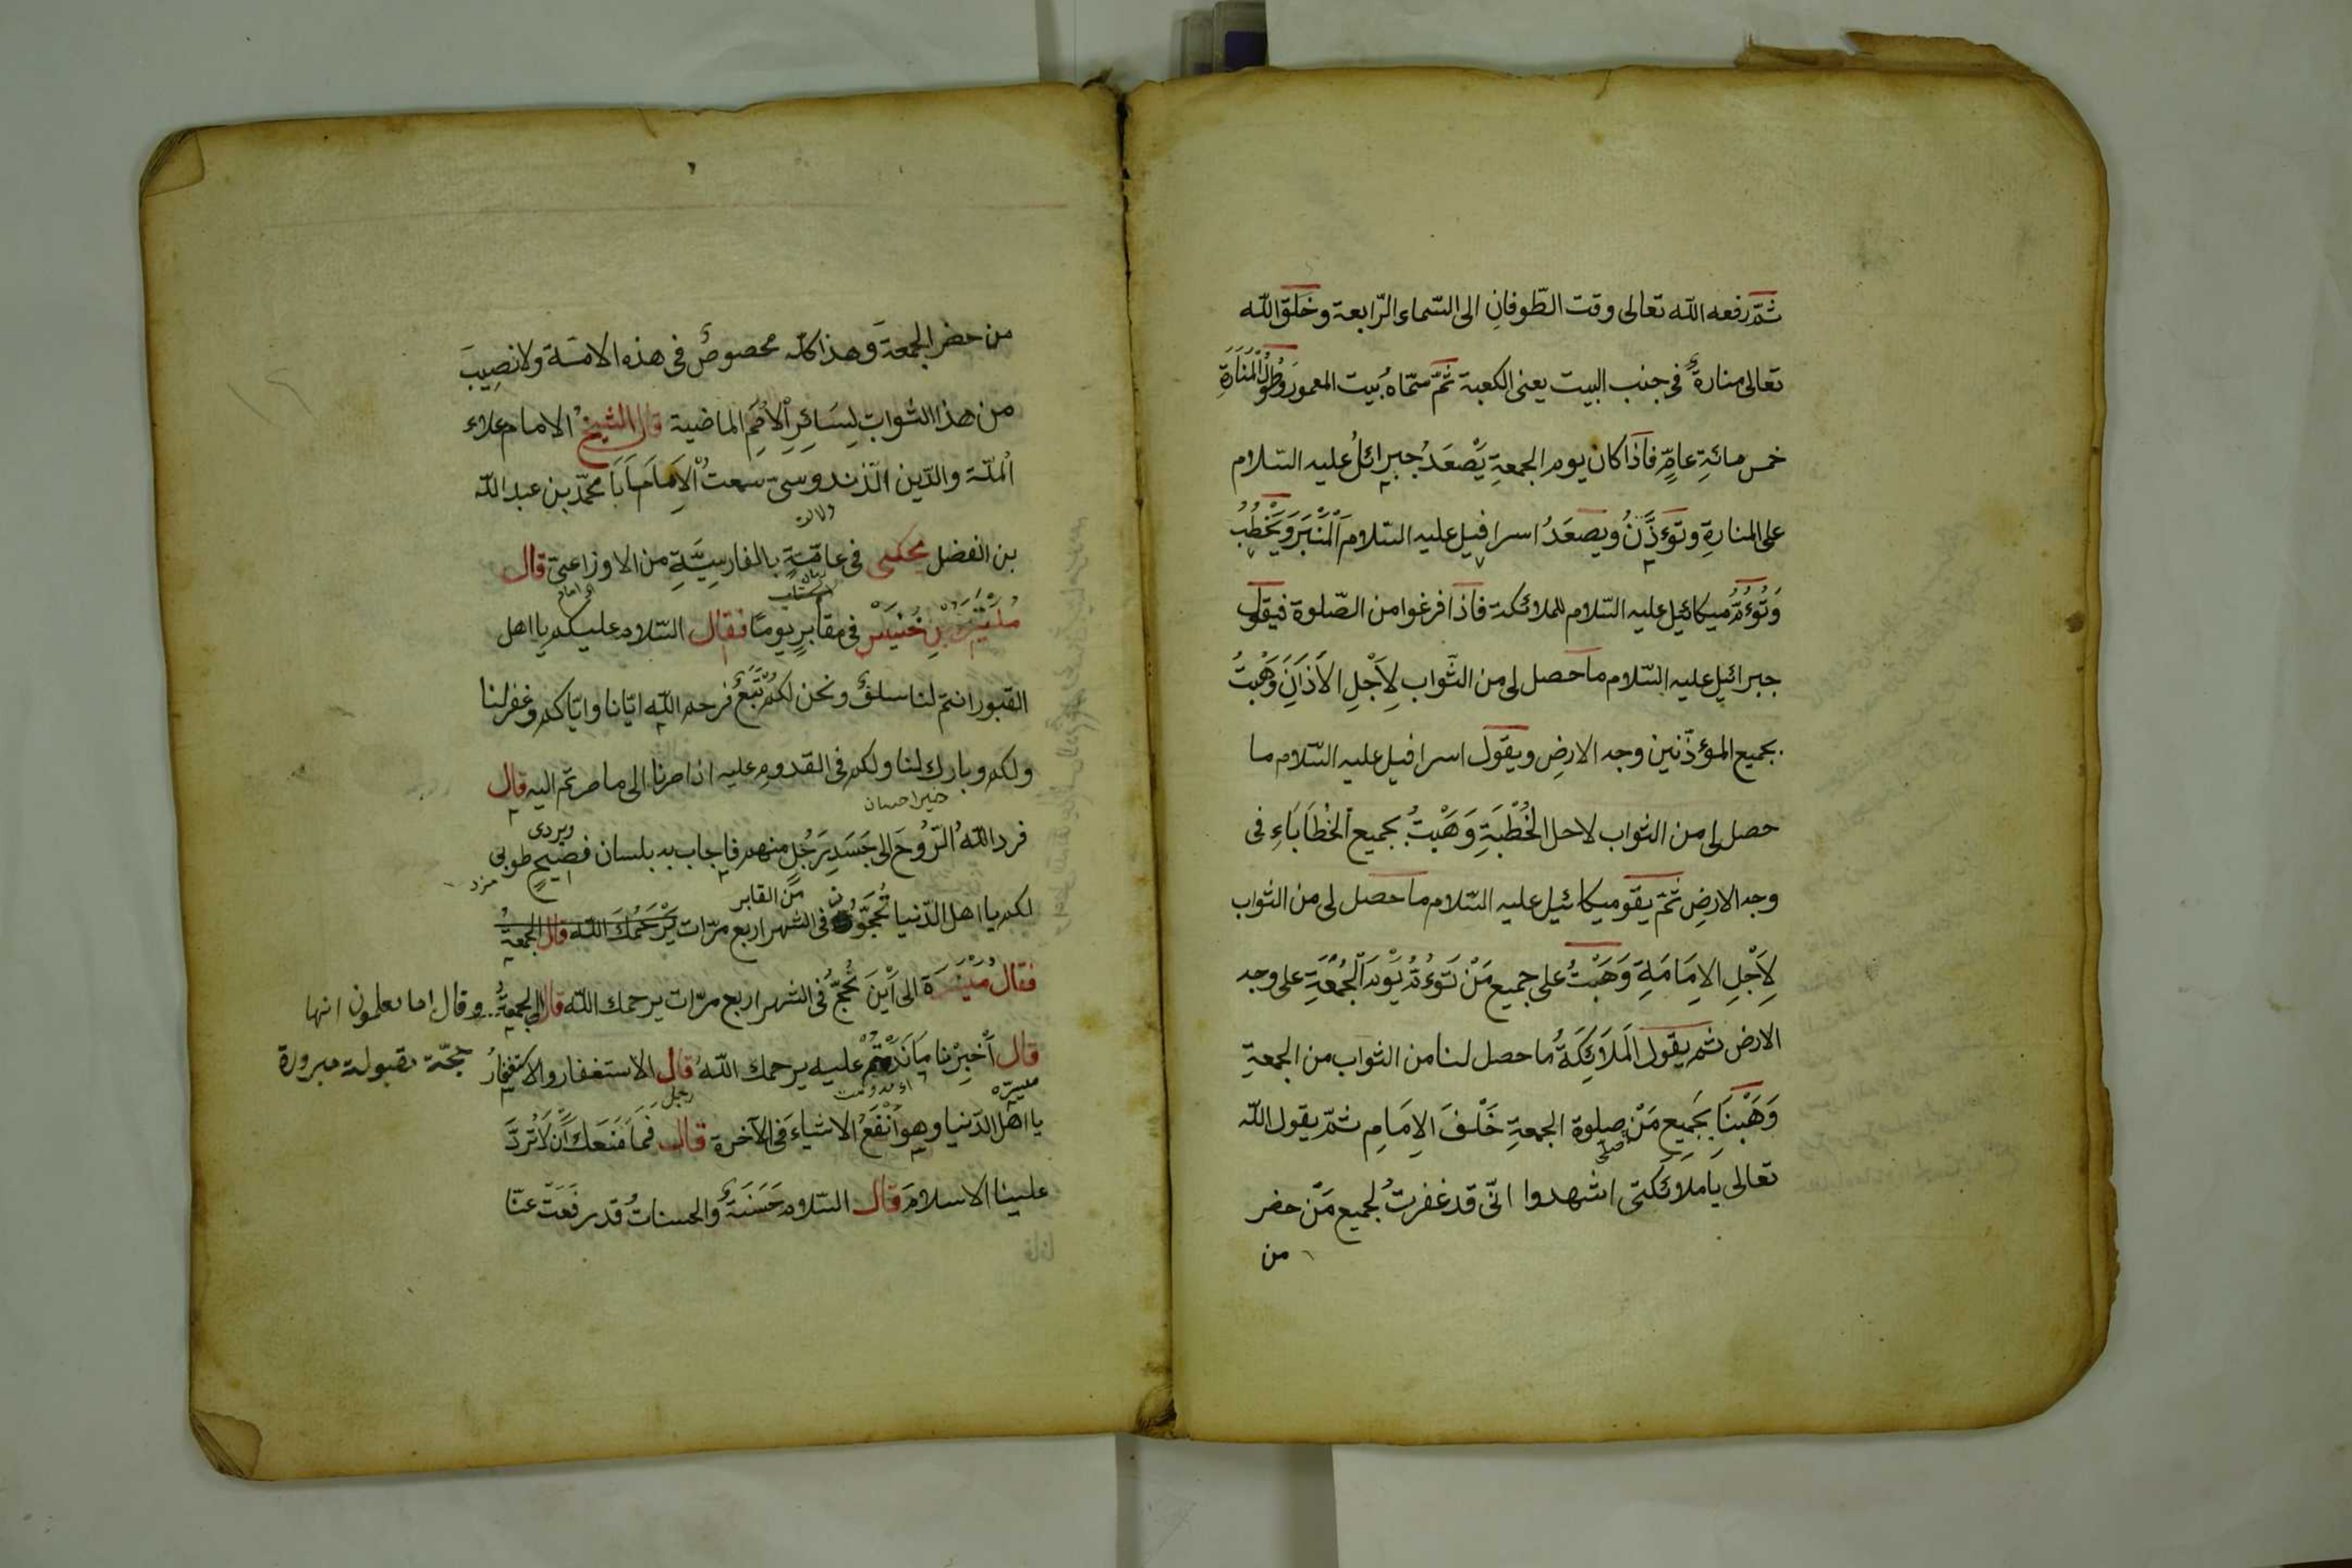 ثمّ رفعه الله تعالى وقت الطّوفانِ الى السّماء الرّابعة وخَلَقَ الله
تعالى منارةً فى جنب البيت يعنى الكعبة ثمّ سمّاهُ بيت المعمور وطُولُ الْمَنَارَةِ
خمس مائةِ عامٍ فاذا كان يوم الجمعةِ يَصْعَدُ جبرائلُ عليه السّلام
على المنارةِ وتؤَذِّنُ ويصعَدُ اسرافيل عليه السّلام الْمَنْبَرَ وَيَخْطُبُ
وَتُؤمُّ ميكائيل عليه السّلام للملائكة فاذا فرغوا من الصّلوة فيقول
جبرائيل عليه السّلام ما حصل لى من الثّواب لِاَجْلِ الاَذَانِ وَهَبْتُ
بجميع المؤذّنين وجه الارضِ ويقول اسرافيل عليه السّلام ما
حصل لى من الثواب لاجل الخُطْبَةِ وَهَبْتُ بجميع الْخُطَابَاءِ فى
وجه الارضِ ثمّ يقو ميكائيل عليه السّلام ما حصل لى من الثواب
لِاَجْلِ الاِمَامَةِ وَهَبْتُ على جميع مَنْ تَؤُمُّ يَوْمَ الْجُمُعَةِ على وجه
الارض ثم يقول الْمَلَائِكَةُ ما حصل لنا من الثواب من الجمعةِ
وَهَبْنَا بِجَمِيعِ مَنْ صلوة الجمعةِ خَلْفَ الاِمَامِ ثمّ يقول الله
صلّى
تعالى يا ملائكتى اشهدوا انّى قد غفرتُ لجميع مَنْ حضر
من
من حضر الجمعةَ وهذا كلّه مخصوصٌ فى هذه الامّة ولا نصِيبَ
من هذا الثواب لِسَائِرِ الْاُمَمِ الماضية قال الشيخ الامام علاء
الملّة والدّين الزّندوسىّ سمعتُ الْاِمَامَ اَبَا محمّد بن عبد الله
بن الفضل يحكى فى عامّةٍ بالفارسِيَّةِ من الاوزاعىّ قال
فى مقابرٍ يومًا فقال السّلام عليكم يا اهل
القبور انتم لنا سلفٌ ونحن لكم تَبَعٌ فرحم الله ايّانا وايّاكم وغفر لنا
ولكم وبارك لنا ولكم فى القدوم عليه اذا صرنا الى ما صرتم اليه قال
فرد اللهُ الرّوُحَ الى جَسَدِ رَجُلٍ منهم فاجاب به بلسان فصيحٍ طوبى
لكم يا اهل الدّنيا تُحجّوُن فى الشهر اربع مرّات يَرْحَمُكَ الله قال الجمعةُ
فقال مَيْسَرَة الى اَيْنَ تُحجُّ فى الشهر اربع مرّات يرحمك الله قال الى الجمعةِ وقال اما تعلمون انها
حجّة مقبولة مبرورة
قال اَخْبِرْنا مَا عليه يرحمك اللهُ قال الاستغفار
يا اهْلَ الدّنيا وهو اَنْفَعُ الاشياءَ فى الآخرة قال فَمَا مَنَعَكَ اَنْ لَا تُردَّ
علينا الاسلامَ قال السّلام حَسَنَةٌ والحسناتُ قد رفَعَتْ عنّا